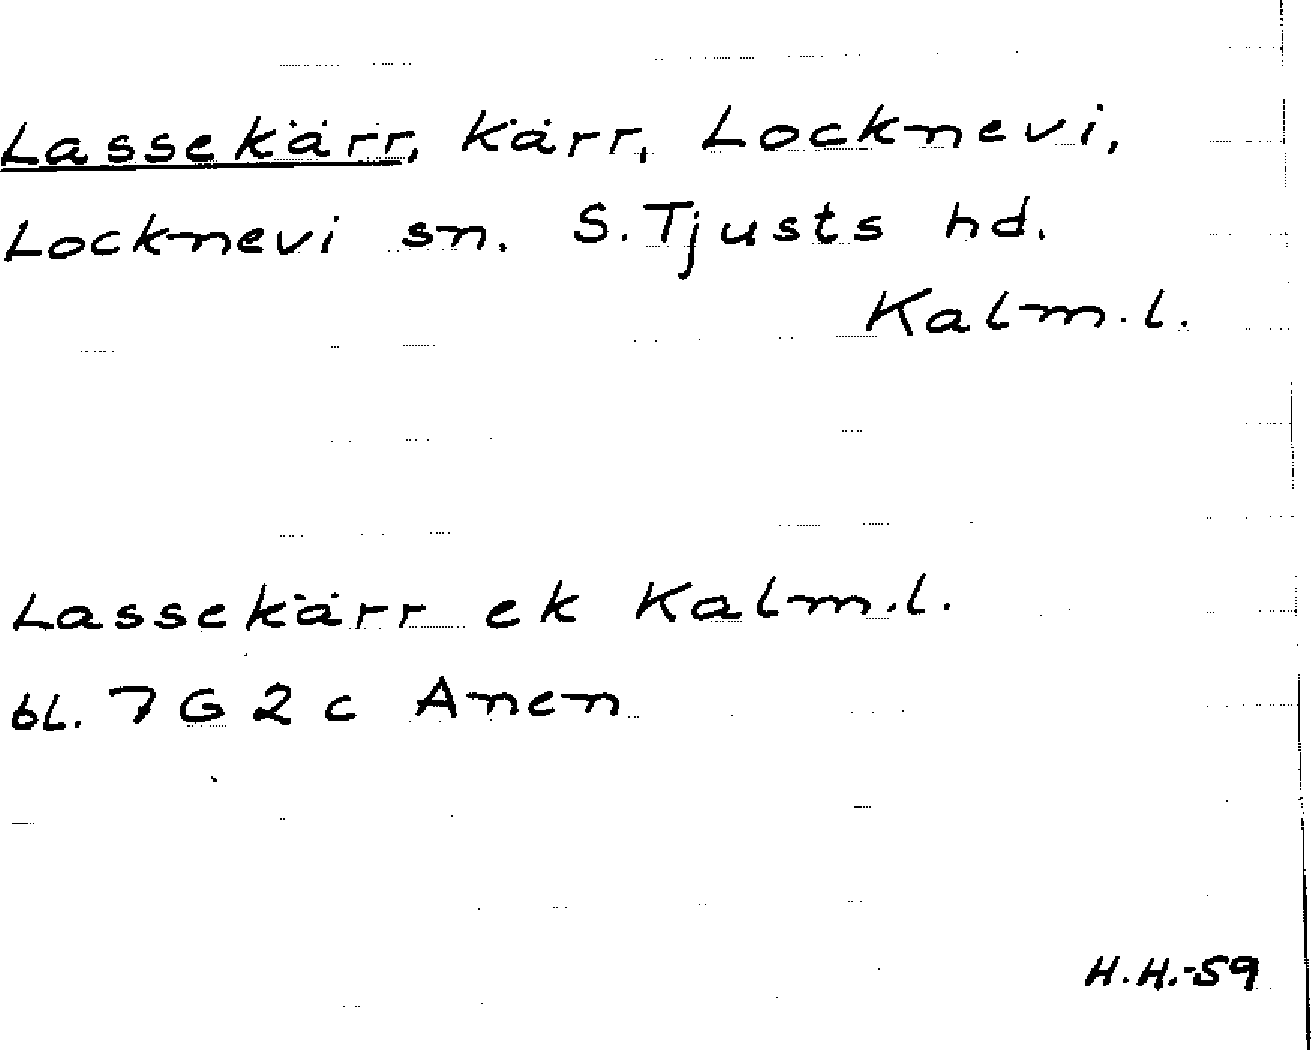 Lassekärr, kärr, Locknevi,
Locknevi sn. S. Tjusts hd.
Kalm.l.
Lassekärr ek Kalm.l.
bl. 7G2c Anen
H.H.-59